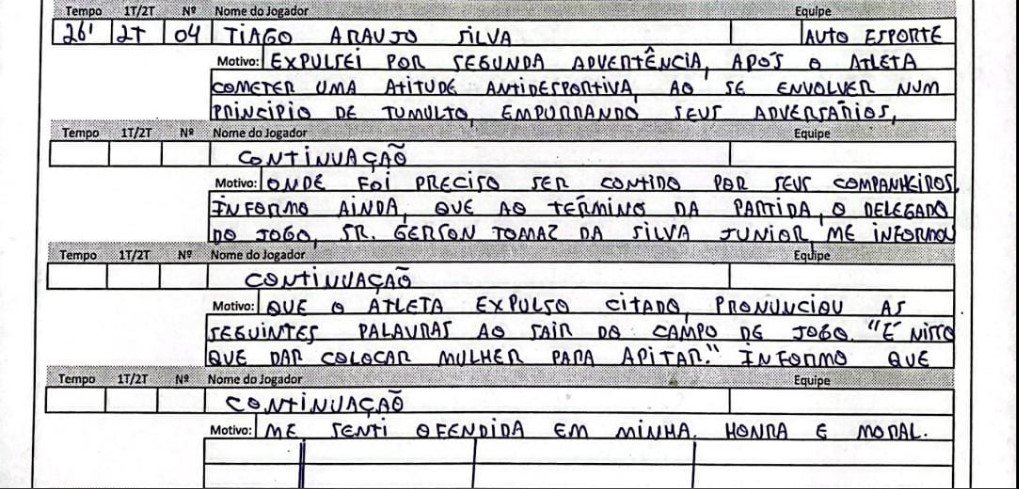 Tempo 1T/2T Nº Nome do Jogador Equipe
26' 2T 04 TIAGO ARAUJO SILVA AUTO ESPORTE
Motivo: EXPULSEI POR SEGUNDA ADVERTÊNCIA, APÓS O ATLETA
COMETER UMA ATITUDE ANTIDESPORTIVA, AO SE ENVOLVER NUM
PRINCÍPIO DE TUMULTO, EMPURRANDO SEUS ADVERSÁRIOS,
Tempo 1T/2T Nº Nome do Jogador Equipe
CONTINUAÇÃO
Motivo: ONDE FOI PRECISO SER CONTIDO POR SEUS COMPANHEIROS.
INFORMO AINDA, QUE AO TÉRMINO DA PARTIDA, O DELEGADO
DO JOGO, SR. GERSON TOMAZ DA SILVA JUNIOR ME INFORMOU
Tempo 1T/2T Nº Nome do Jogador Equipe
CONTINUAÇÃO
Motivo: QUE O ATLETA EXPULSO CITADO, PRONUNCIOU AS
SEGUINTES PALAVRAS AO SAIR DO CAMPO DE JOGO. "É NISTO
QUE DAR COLOCAR MULHER PARA APITAR." INFORMO QUE
Tempo 1T/2T Nº Nome do Jogador Equipe
CONTINUAÇÃO
Motivo: ME SENTI OFENDIDA EM MINHA HONRA E MORAL.